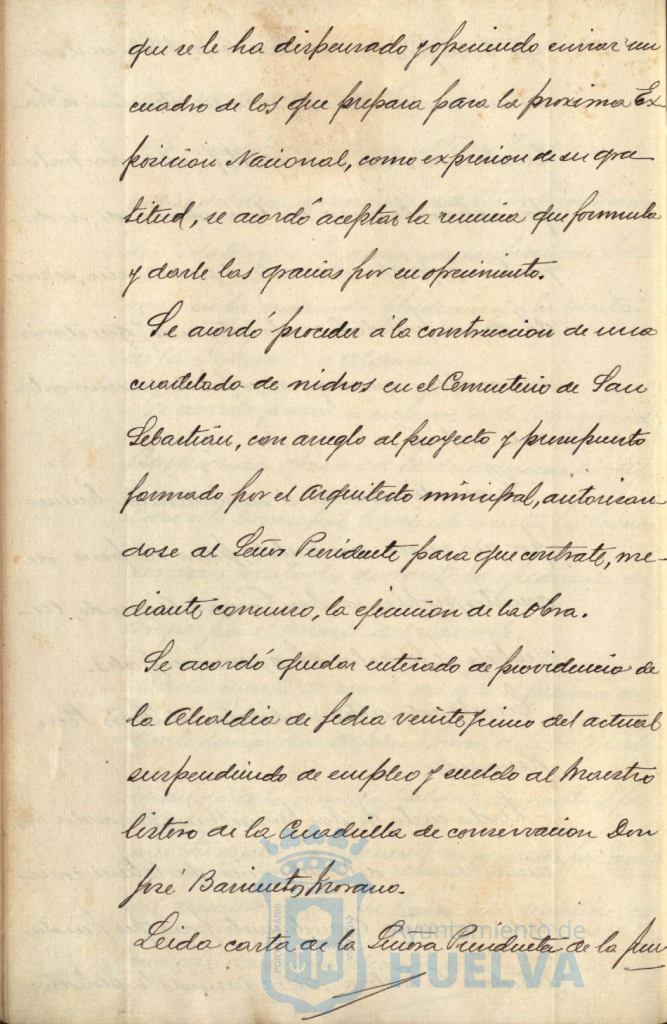 que se le ha dispensado y ofreciendo enviar un
cuadro de los que prepara para la proxima Ex
posicion Nacional, como expresion de su gra
titud, se acordó aceptar la renuncia que formula
y darle las gracias por su ofrecimiento.
Se acordó proceder á la construccion de una
cuartelada de nichos en el Cementerio de San
Sebastián, con arreglo al proyecto y presupuesto
formado por el Arquitecto municipal, autorizan
dose al Señor Presidente para que contrate, me-
diante concurso, la ejecucion de la obra.
Se acordó quedar enterado de providencia de
la Alcaldia de fecha veinte y cinco del actual
suspendiendo de empleo y sueldo al Maestro
listero de la Cuadrilla de conservacion Don
José Barrientos Morano.
Leida carta de la Señora Presidenta de la Jun
Ayuntamiento de
HUELVA